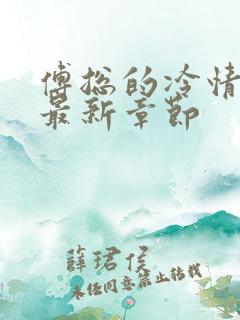 傅总的冷情
最新章节
薛珺侯
未经同意禁止转载